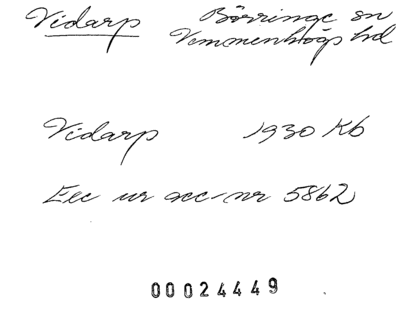 Vidarp Börringe sn
Vemmenhögs hd
Vidarp 1930 Kb
Exc ur acc-nr 5862
00024449